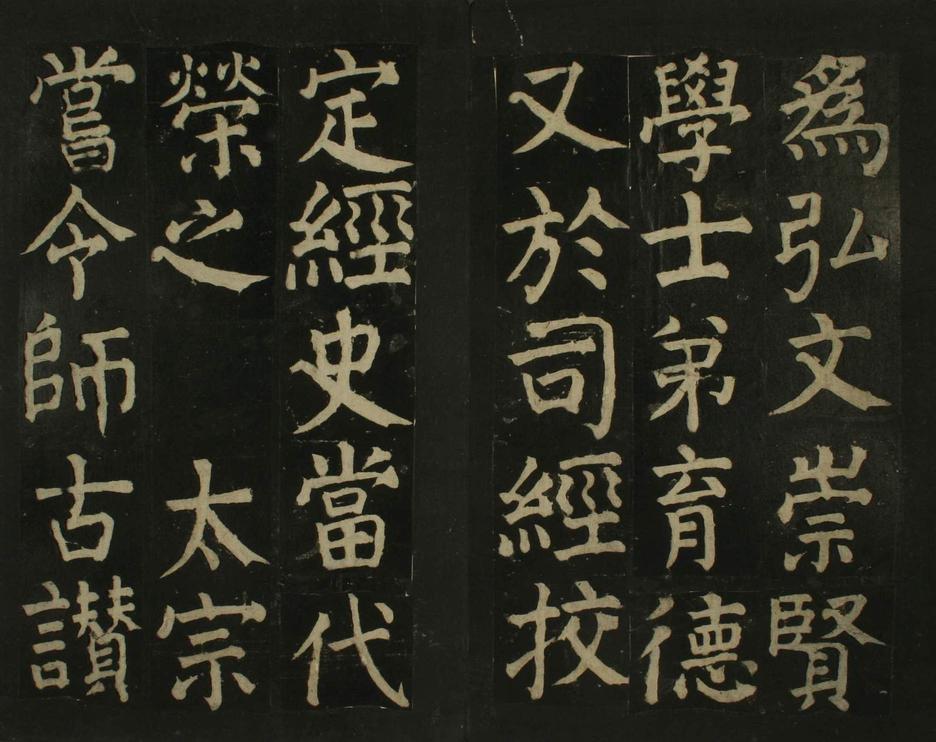 爲弘文崇賢
學士弟育德
又於司經挍
定經史當代
榮之 太宗
嘗令師古讚